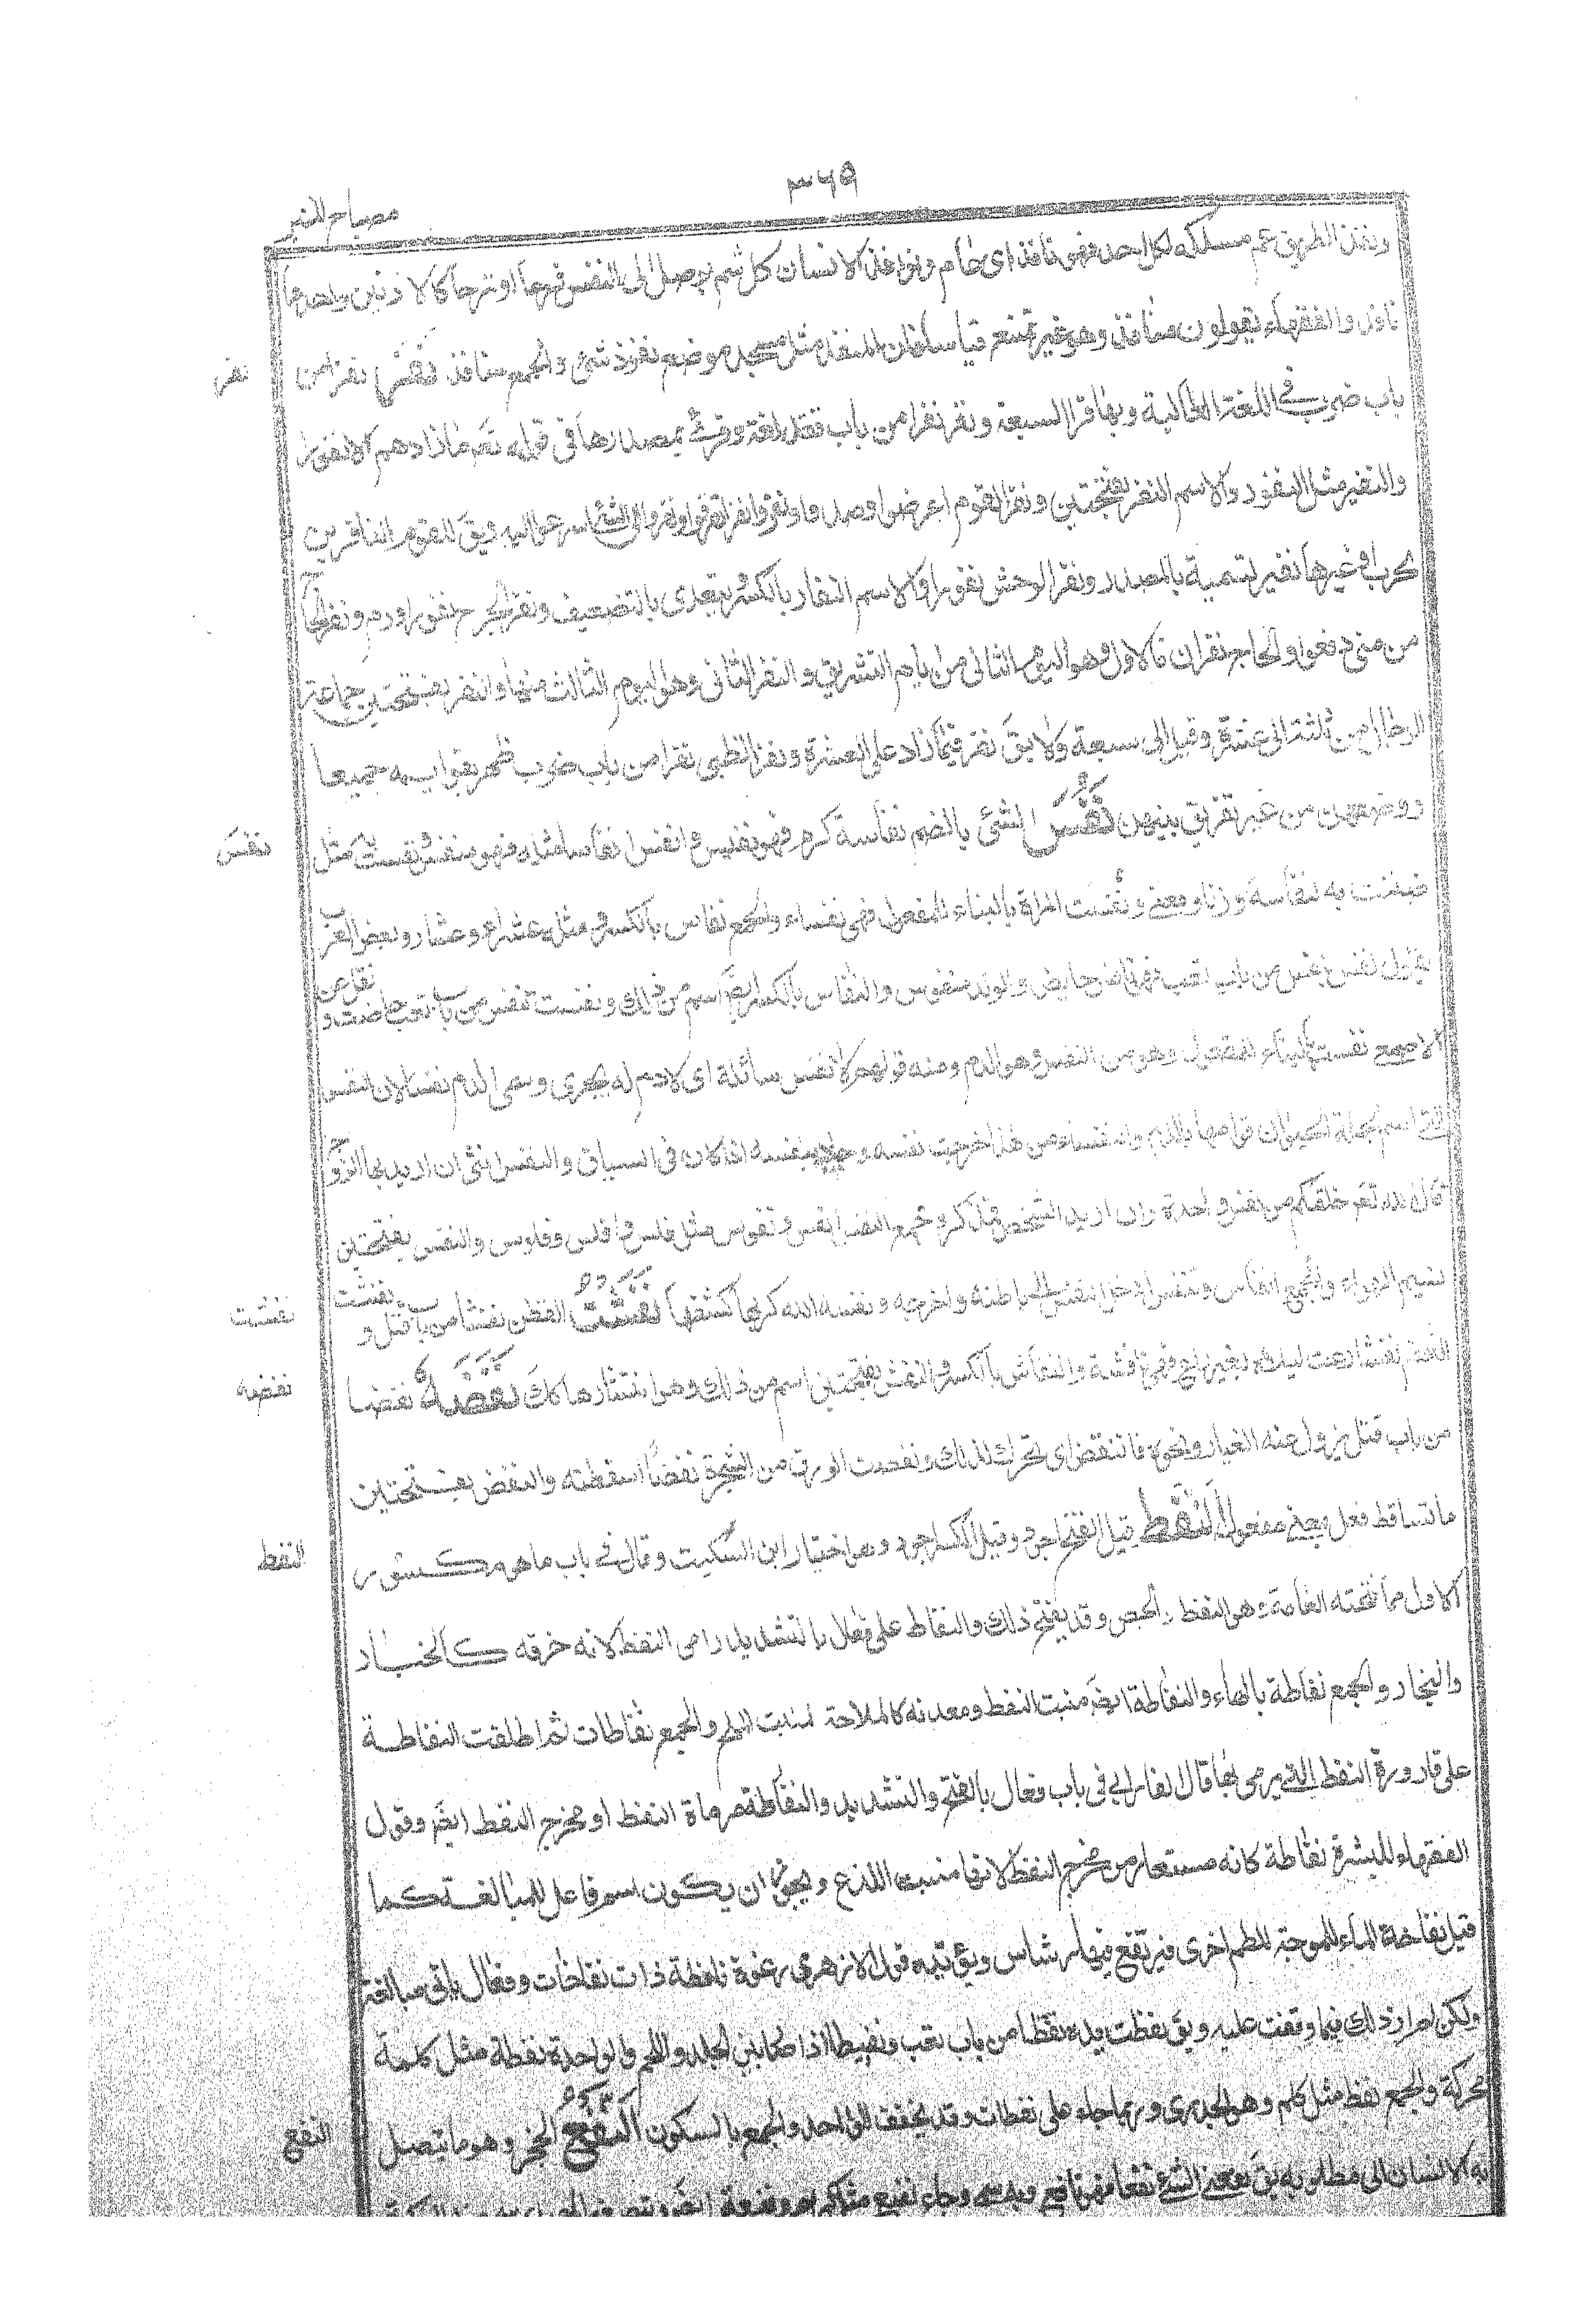 ٣٦٩
مصباح المنير
ونفذ الطريق عم مسلكه لكل احد فهو نافذ اى عام ونوافذ الانسان كل شئ يوصل الى النفس فرحا او ترحا كالاذنين واحدها
نافذ والفقهاء يقولون منافذ وهو غير ممتنع قياسا فان المنفذ مثل مسجد موضع نفوذ شئ والجمع منافذ نفر نفرا من
نفر
باب ضرب في اللغة العالية وبها قرا السبعة ونفر نفرا من باب قعد لغة وقرئ بمصدرها فى قوله تعـ ما زادهم الا نفورا
والنفير مثل النفور والاسم النفر بفتحتين ونفر القوم اعرضوا وصدوا ونفروا نفرا تفرقوا ونفروا الى الشئ اسرعوا اليه ويق للقوم النافرين
لحرب او غيرها نفير تسمية بالمصدر ونفر الوحش نفورا والاسم النفار بالكسر ويتعدى بالتضعيف ونفر الجرح نفورا ورم ونفر الحاج
من منى دفعوا وللحاج نفران فالاول وهو اليوم الثانى من ايام التشريق والنفر الثانى وهو اليوم الثالث منها والنفر بفتحتين جماعة
الرجال من ثلثة الى عشرة وقيل الى سبعة ولا يق نفر فيما زاد على العشرة ونفز الظبى نفزا من باب ضرب ظفر بقوايمه جميعا
ووضعهن من غير تفريق بينهن نفس الشئ بالضم نفاسة كرم فهو نفيس وانفس انفاسا مثله فهو منفس ونفست به مثل
نفس
ضننت به لنفاسته وزنا ومعنى ونفست المراة بالبناء للمفعول فهى نفساء والجمع نفاس بالكسر مثل عشراء وعشار وبعض العرب
يقول نفست تنفس من باب تعب فهى نافس حايض والولد منفوس والنفاس بالكسر ايضا اسم من ذلك ونفست تنفس من باب تعب حاضت و نقل عن
الاصمعى نفست بالبناء للمفعول وهو من النفس وهو الدم ومنه قولهم لا نفس سائلة اى لا دم له يجرى وسمى الدم نفسا لان النفس
التى اسم لجملة الحيوان قوامها بالدم والنفساء من هذا خرجت نفسه وجاد بنفسه اذا كان فى السياق والنفس انثى ان اريد بها الروح
قال الله تعـ خلقكم من نفس واحدة وان اريد الشخص فمذكر وجمع النفس انفس ونفوس مثل فلس وافلس وفلوس والنفس بفتحتين
نسيم الهواء والجمع انفاس وتنفس ادخل النفس الى باطنه واخرجه ونفس الله كربها كشفها نفشت القطن نفشا من باب قتل و نفشت
نفشت
الغنم نفشا رعت ليلا بغير راع فهى نافشة والنفاش بالكسر والنفش بفتحتين اسم من ذلك وهو انتشارها كك نفضه نفضا
نفضه
من باب قتل ليزول عنه الغبار ونحوه فانتفض اى تحرك لذلك ونفضت الورق من الشجرة نفضا اسقطته والنفض بفتحتين
ما تساقط فعل بمعنى مفعول النفط قيل الفتح اجود وقيل الكسر اجود وهو اختيار ابن السكيت وقال في باب ما هو مكسور
النفط
الاول مما فتحته العامة وهو النفط والجص وقد يفتح ذلك والنفاط على فعال بالتشديد رامى النفط لانه حرفه كالخباز
والنجار والجمع نفاطة بالهاء والنفاطة ايضا منبت النفط ومعدنه كالملاحة لمنبت الملح والجمع نفاطات ثم اطلقت النفاطة
على قارورة النفط التى يرمى بها قال الفارابى فى باب فعال بالفتح والتشديد والنفاطة مرماة النفط او مخرج النفط ايضا وقول
الفقهاء للبشرة نفاطة كانه مستعار من مخرج النفط لانها منبت اللذع ويجوز ان يكون اسم فاعل للمبالغة كما
قيل نفاخة الماء للموجة تلطم اخرى فيرتفع فيها رشاش ويؤيده قول الازهرى رغوة نافطة ذات نفاخات وفعال ياتى مبالغة
ولكن لم ار ذلك فيما وقفت عليه ويق نفطت يده نفطا من باب تعب ونفيطا اذا صار بين الجلد واللحم والواحدة نفطة مثل كلمة
محركة والجمع نفط مثل كلم وهو الجدرى وربما جاء على نفطات وقد يخفف الواحد والجمع بالسكون النفع الخير وهو ما يتوصل
النفع
به الانسان الى مطلوبه يق نفعنى الشئ نفعا فهو نافع وبه سمى وجاء نفيع مثل